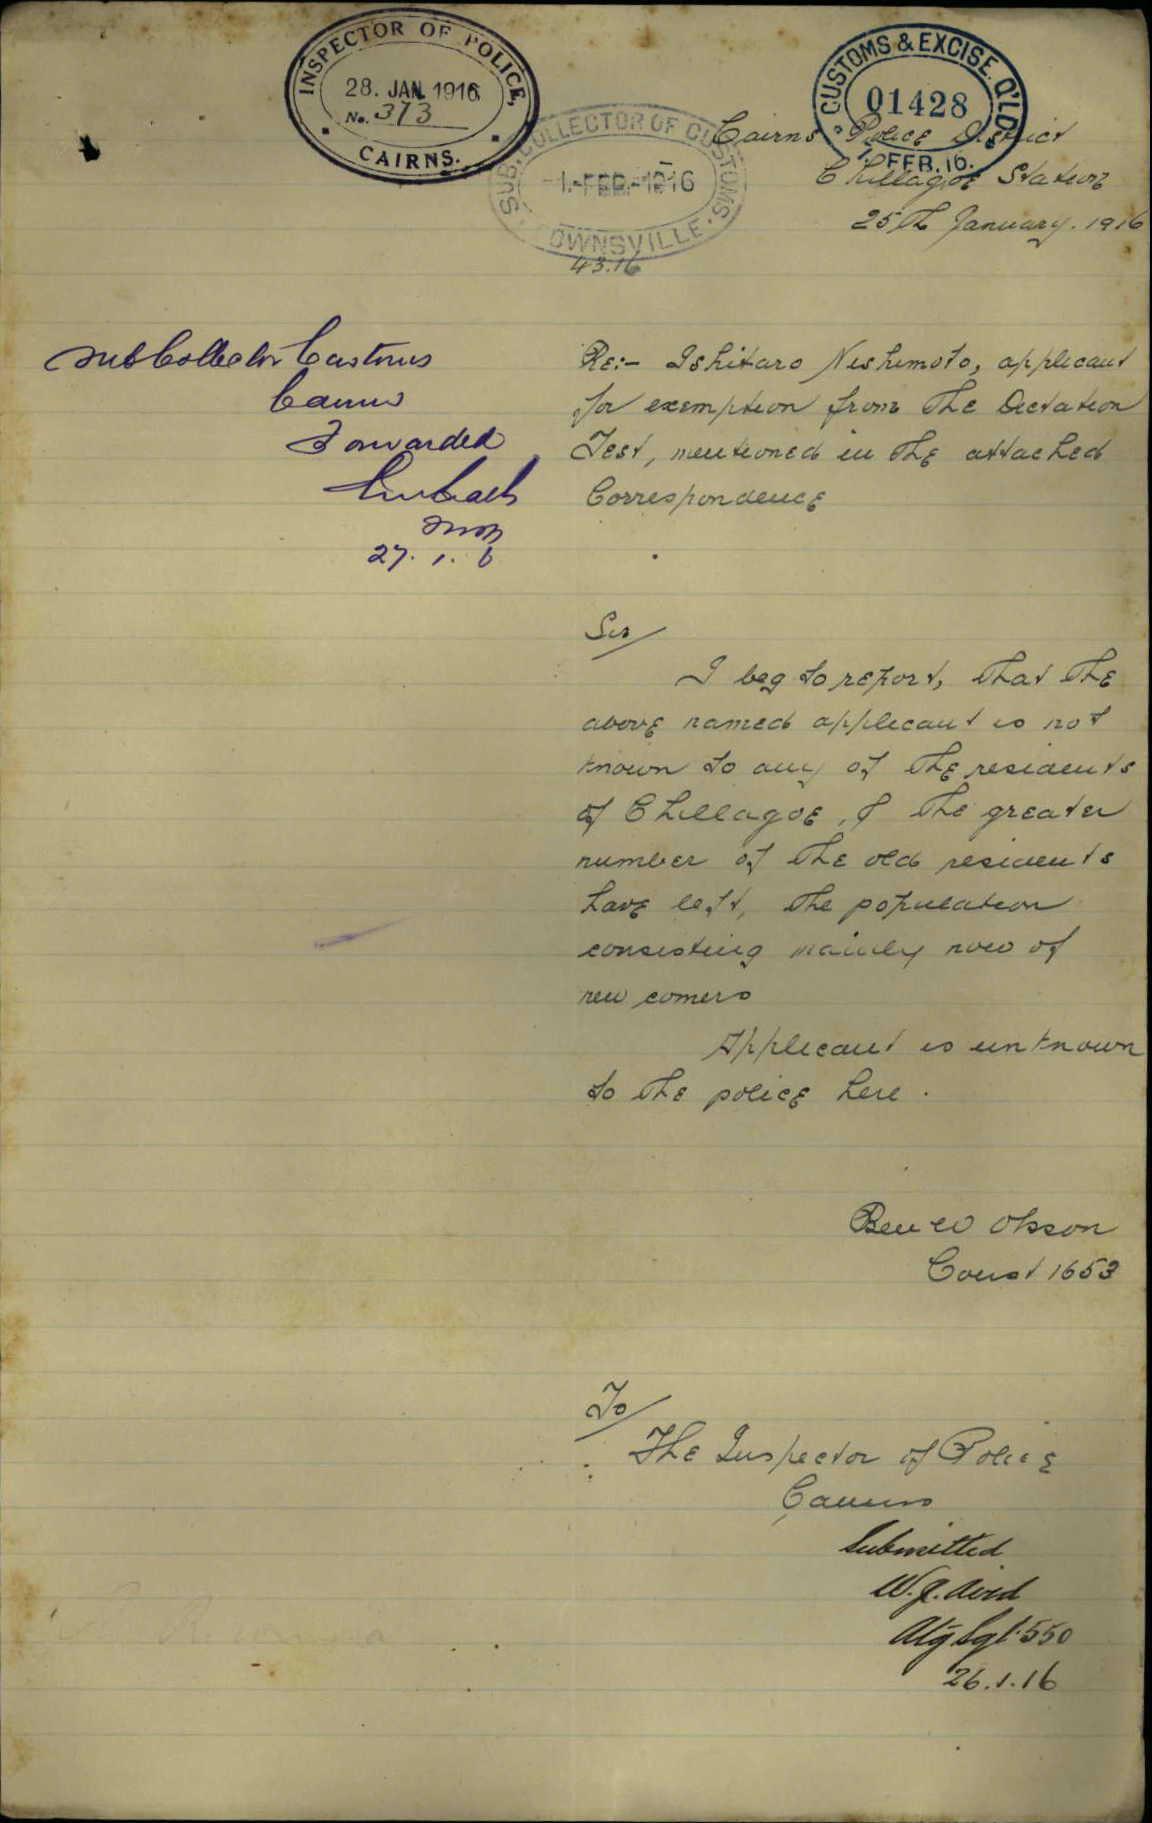 INSPECTOR OF POLICE,
28. JAN. 1916
No. 373
CAIRNS.
CUSTOMS & EXCISE. Q'LD.
01428
1. FEB. 16.
SUB. COLLECTOR OF CUSTOMS.
-1. FEB. 1916
TOWNSVILLE
43.16
Cairns Police District
Chillagoe Station
25th January. 1916
Sub Collector Customs
Cairns
Forwarded
27. 1. 6
Re:- Ishitaro Nishimoto, applicant
for exemption from the Dictation
Test, mentioned in the attached
Correspondence
Sir
I beg to report, that the
above named applicant is not
known to any of the residents
of Chillagoe, & the greater
number of the old residents
have left, the population
consisting mainly now of
new comers
Applicant is unknown
to the police here.
Ben W Olsson
Const 1653
To
The Inspector of Police
Cairns
Submitted
W. J.
Atg Sgt. 550
26.1.16